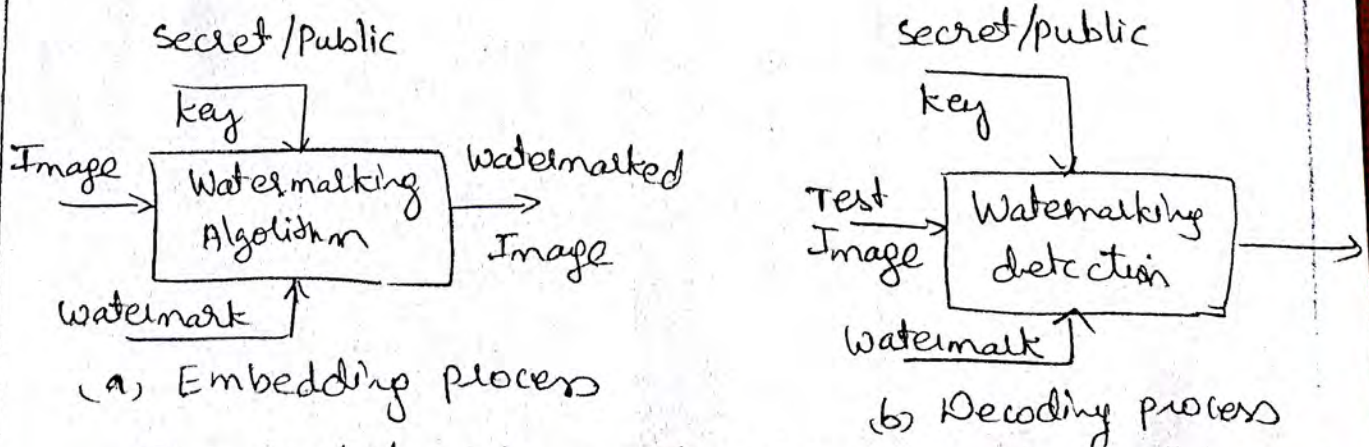 secret/Public
key
Image
Watermarking
Algorithm
Watermarked
Image
Watermark
(a) Embedding process
secret/public
key
Test
Image
Watemarking
detection
Watermark
(b) Decoding process